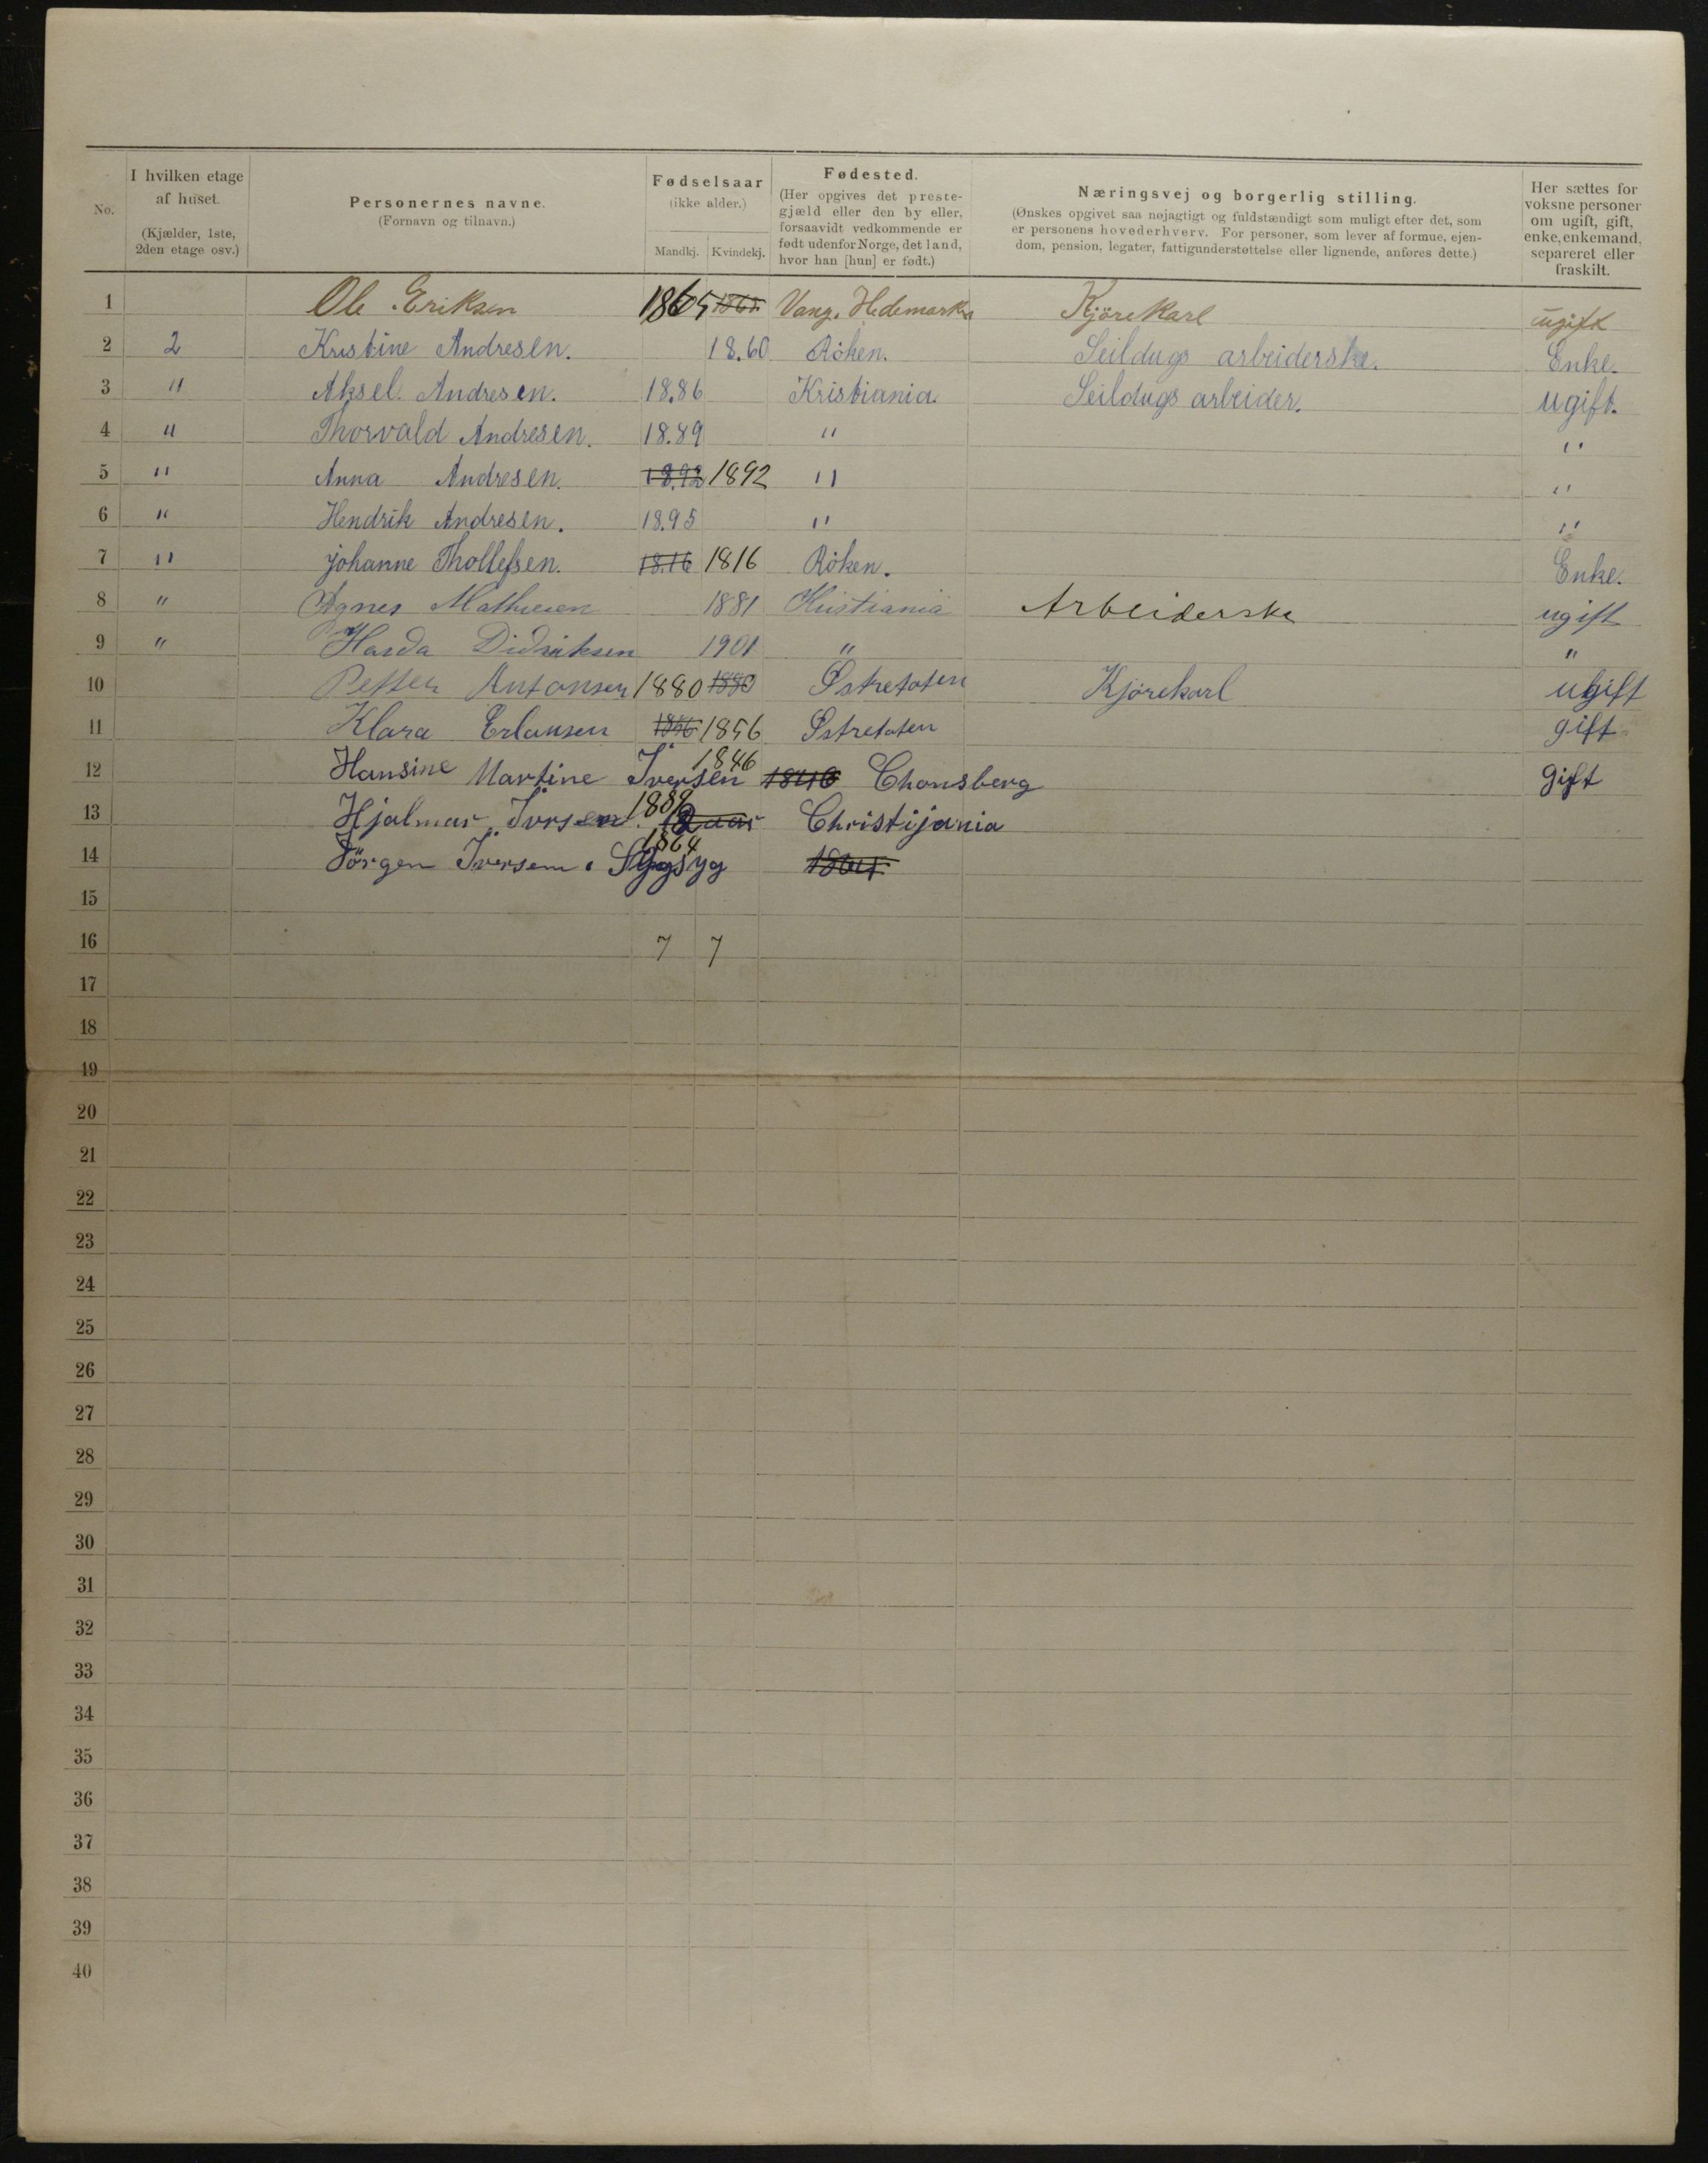 No. I hvilken etage af huset. (Kjælder, 1ste, 2den etage osv.) Personernes navne. (Fornavn og tilnavn.) Fødselsaar (ikke alder.) Mandkj. Kvindekj. Fødested. (Her opgives det prestegjæld eller den by eller, forsaavidt vedkommende er født udenfor Norge, det land, hvor han [hun] er født.) Næringsvej og borgerlig stilling. (Ønskes opgivet saa nøjagtigt og fuldstændigt som muligt efter det, som er personens hovederhverv. For personer, som lever af formue, ejendom, pension, legater, fattigunderstøttelse eller lignende, anføres dette.) Her sættes for voksne personer om ugift, gift, enke, enkemand, separeret eller fraskilt.
1 Ole Eriksen 1865 1865 Vang. Hedemarken Kjörekarl ugift
2 2 Kristine Andresen. 18.60 Röken. Seildugs arbeiderske. Enke.
3 " Aksel Andresen. 18.86 Kristiania. Seildugs arbeider. ugift.
4 " Thorvald Andresen. 18.89 " "
5 " Anna Andresen. 18.92 1892 " "
6 " Hendrik Andresen. 18.95 " "
7 " Johanne Thollefsen. 18.16 1816 Röken. Enke.
8 " Agnes Mathiesen 1881 Kristiania Arbeiderske ugift
9 " Harda Didriksen 1901 " "
10 Petter Antonsen 1880 1880 Østretoten Kjørekarl ugift
11 Klara Erlansen 1856 1856 Østretoten gift
12 Hansine Martine Iversen 1846 1846 Chonsberg gift
13 Hjalmar Iversen 1889 12 aar Christijania
14 Jörgen Iversen. 1864 Sygsyg 1864
15
16 7 7
17
18
19
20
21
22
23
24
25
26
27
28
29
30
31
32
33
34
35
36
37
38
39
40